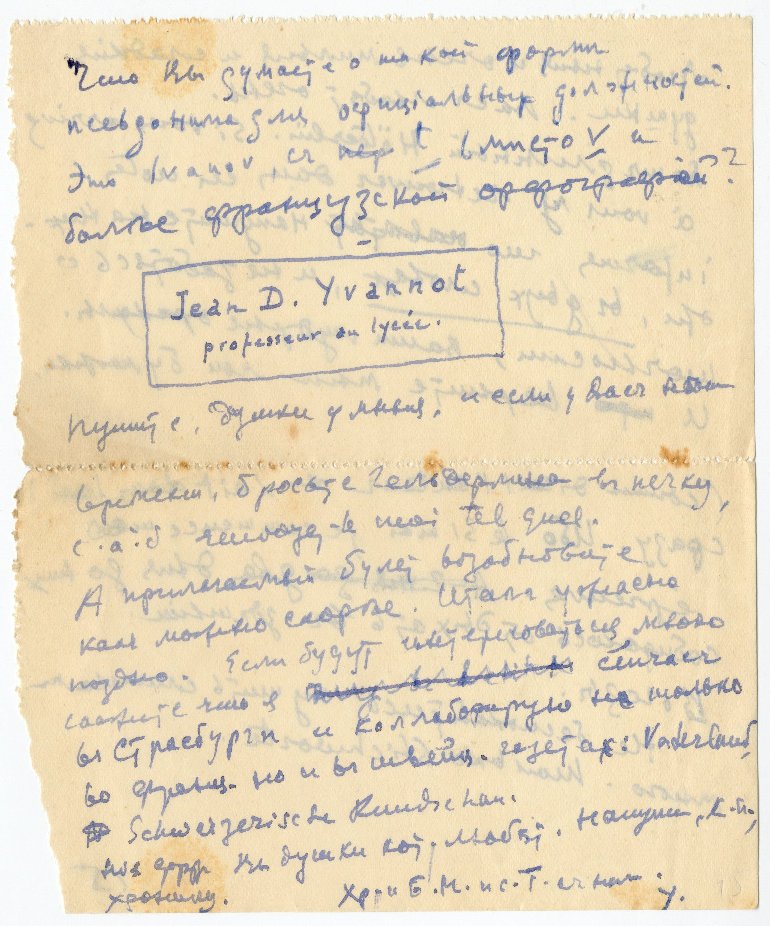 Что Вы думаете о такой формы
псевдонима для официальных должностей.
Это Ivanov съ t вместо v и
более французской орфографией?
Jean D. Yvannot
professeur au lycée.
Пишите, душки умныя, и если у Васъ нетъ
времени, бросьте въ печку,
c.a.d renvoyez-le moi tel quel.
А прилагаемый булет возобновите
какъ можно скорее. Итакъ ужасно
поздно. Если будут интересоваться мною
скажите что я сейчасъ
въ Страсбурги и коллаборирую не только
во франц. но и въ швейц. газетах: Vaterland,
Schweizerische Rundschau.
Вы душки
хронику. Хр. и Б.М. и с. Т. съ нами